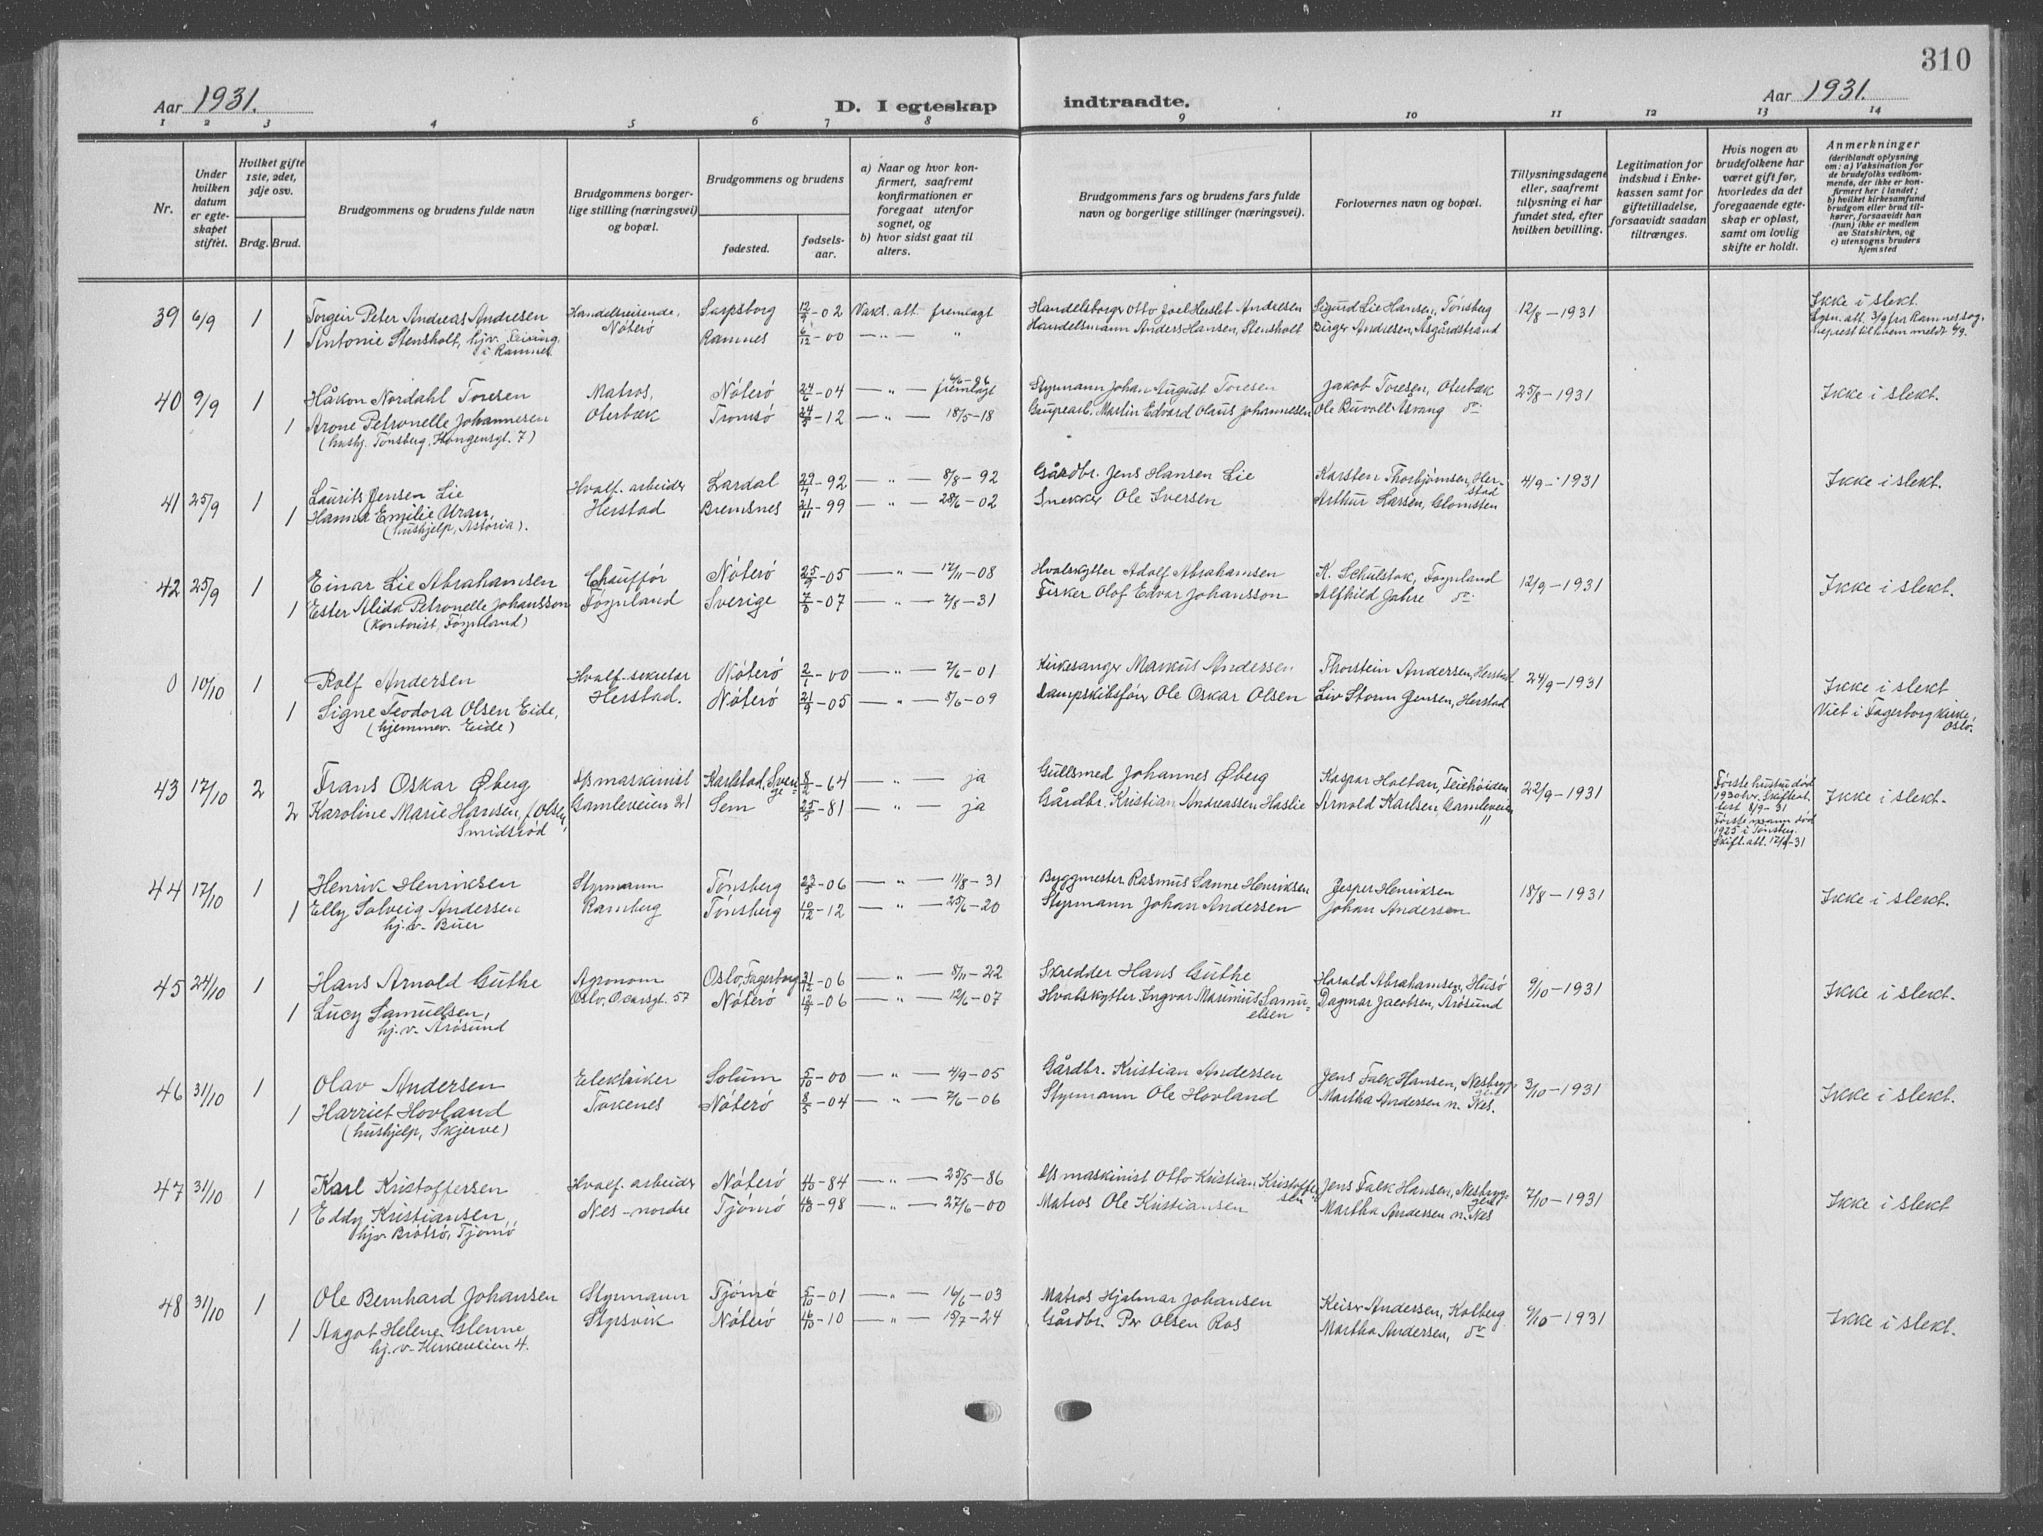 310
Aar 1931.
D. I egteskap indtraadte.
Aar 1931.
1 2 3 4 5 6 7 8 9 10 11 12 13 14
Nr.
Under hvilken datum er egteskapet stiftet.
Hvilket gifte 1ste, 2det, 3dje osv.
Brdg. Brud.
Brudgommens og brudens fulde navn
Brudgommens borgerlige stilling (næringsvei) og bopæl.
Brudgommens og brudens
fødested.
fødselsaar.
a) Naar og hvor konfirmert, saafremt konfirmationen er foregaat utenfor sognet, og
b) hvor sidst gaat til alters.
Brudgommens fars og brudens fars fulde navn og borgerlige stillinger (næringsvei).
Forlovernes navn og bopæl.
Tillysningsdagene eller, saafremt tillysning ei har fundet sted, efter hvilken bevilling.
Legitimation for indskud i Enkekassen samt for giftetilladelse, forsaavidt saadan tiltrænges.
Hvis nogen av brudefolkene har været gift før, hvorledes da det foregaaende egteskap er opløst, samt om lovlig skifte er holdt.
Anmerkninger
(deriblandt oplysning om: a) Vaksination for de brudefolks vedkommende, der ikke er konfirmert her i landet; b) hvilket kirkesamfund brudgom eller brud tilhører, forsaavidt han (hun) ikke er medlem av Statskirken, og c) utensogns bruders hjemsted
39 6/9 1 Torgeir Peter Andreas Andresen Handelsreisende, Nøterø Sarpsborg 12/9-02 Vaks. att. fremlagt Otto Joel Herslet Andresen Sigurd Lie Hansen, Tønsberg 12/8-1931 Ikke i slekt.
1 Antonie Stensholt, hjv. i Ramnes Ramnes 6/12-00 — " — " Handelsmann Anders Hansen, Stensholt Birger Andresen, Åsgårdstrand
40 9/9 1 Håkon Nordahl Toresen Matros, Nøterø 24/6-04 — " — fremlagt Styrmann Johan August Toresen Jakob Toresen, Oterbæk 25/8-1931 Ikke i slekt.
1 Arone Petronelle Johannesen Oterbæk Tromsø 24/5-12 — " — 18/5-18 Martin Edvard Olaus Johannesen Ole
(hushj. Tønsberg, Kongensgt. 7)
41 25/9 1 Laurits Jensen Lie Hvalf. arbeider Lardal 29/7-92 — " — 8/8-92 Gårdbr. Jens Hansen Lie Karsten Thorbjørnsen, Herstad 4/9-1931 Ikke i slekt.
1 Hanna Emilie Uran, Herstad Bremsnes 21/11-99 — " — 28/6-02 Snekker Ole Iversen Arthur Larsen, Glomsten
(hushjelp, Astoria).
42 25/9 1 Einar Lie Abrahamsen Chauffør Nøterø 25/9-05 — " — 12/11-08 Hvalskytter Adolf Abrahamsen K. Schulstok, Føynland 12/9-1931 Ikke i slekt.
1 Ester Alida Petronelle Johansson Føynland Sverige -07 — " — 2/8-31 Fisker Olof Edvar Johansson Alfhild Jahre do
(Kontorist, Føynland)
0 10/10 1 Rolf Andersen Hvalf.-sekretær Nøterø 2/1-00 — " — 2/6-01 Kirkesanger Markus Andersen Thorstein Andersen, Herstad 24/9-1931 Ikke i slekt
1 Signe Teodora Olsen Eide, Herstad. Nøterø 21/9-05 — " — 8/6-09 Dampskibsfør. Ole Oskar Olsen Liv Storm Jensen, Herstad Viet i Fagerborg kirke, Oslo.
(hjemmev. Eide)
43 17/10 2 Frans Oskar Øberg D/S maskinist Karlstad, Sverige 8/2-64 — " — ja Gullsmed Johannes Øberg Kaspar Holtan, Teiehøiden 22/9-1931 Første hustru død 1930 Ikke i slekt.
2 Karoline Marie Hansen, f. Olsen, Smidsrød Gamleveien 21 Sem 25/5-81 — " — ja Gårdbr. Kristian Andreassen Haslie Arnold Karlsen, Gamleveien 11 Første mann død 1925 i Tønsberg
44 17/10 1 Henrik Henriksen Styrmann Tønsberg 23/8-06 — " — 11/8-31 Byggmester Rasmus Sanne Henriksen Jesper Henriksen 18/8-1931 Ikke i slekt.
1 Elly Solveig Andersen Ramberg Tønsberg 10/12-12 — " — 25/6-20 Styrmann Johan Andersen Johan Andersen
hj.v. Buer
45 24/10 1 Hans Arnold Guthe Agronom Oslo, Fagerborg 31/12-06 — " — 8/11-22 Skredder Hans Guthe Harald Abrahamsen, Husø 9/10-1931 Ikke i slekt.
1 Lucy Samuelsen, Oslo, Oscarsgt. 57 Nøterø 12/9-06 — " — 12/6-07 Hvalskytter Ingvar Marinius Samuelsen Dagmar Jacobsen, Årøsund
hj.v. Årøsund
46 31/10 1 Olav Andersen Elektriker Solum 5/10-00 — " — 4/9-05 Gårdbr. Kristian Andersen Jens Falk Hansen, Nesbryggen 3/10-1931 Ikke i slekt.
1 Harriet Hovland Tokenes Nøterø 8/5-04 — " — 2/6-06 Styrmann Ole Hovland Martha Andersen n. Nes.
(hushjelp, Skjerve)
47 31/10 1 Karl Kristoffersen Hvalf. arbeider Nøterø -84 — " — 25/5-86 D/S maskinist Otto Kristian Kristoffersen Jens Falk Hansen, Nesbryggen 7/10-1931 Ikke i slekt
1 Eddy Kristiansen Nes-nordre Tjømø -98 — " — 27/6-00 Matros Ole Kristiansen Martha Andersen n. Nes
hjv. Brøtsø, Tjømø
48 31/10 1 Ole Bernhard Johansen Styrmann Tjømø 5/10-01 — " — 16/6-03 Matros Hjalmar Johansen Keiser Andersen, Kolberg 9/10-1931 Ikke i slekt.
1 Aagot Helene Glenne Styrsvik Nøterø 16/10-10 — " — 15/7-24 Gårdbr. Per Olsen Ros Martha Andersen, do
hj.v. Kirkeveien 4.